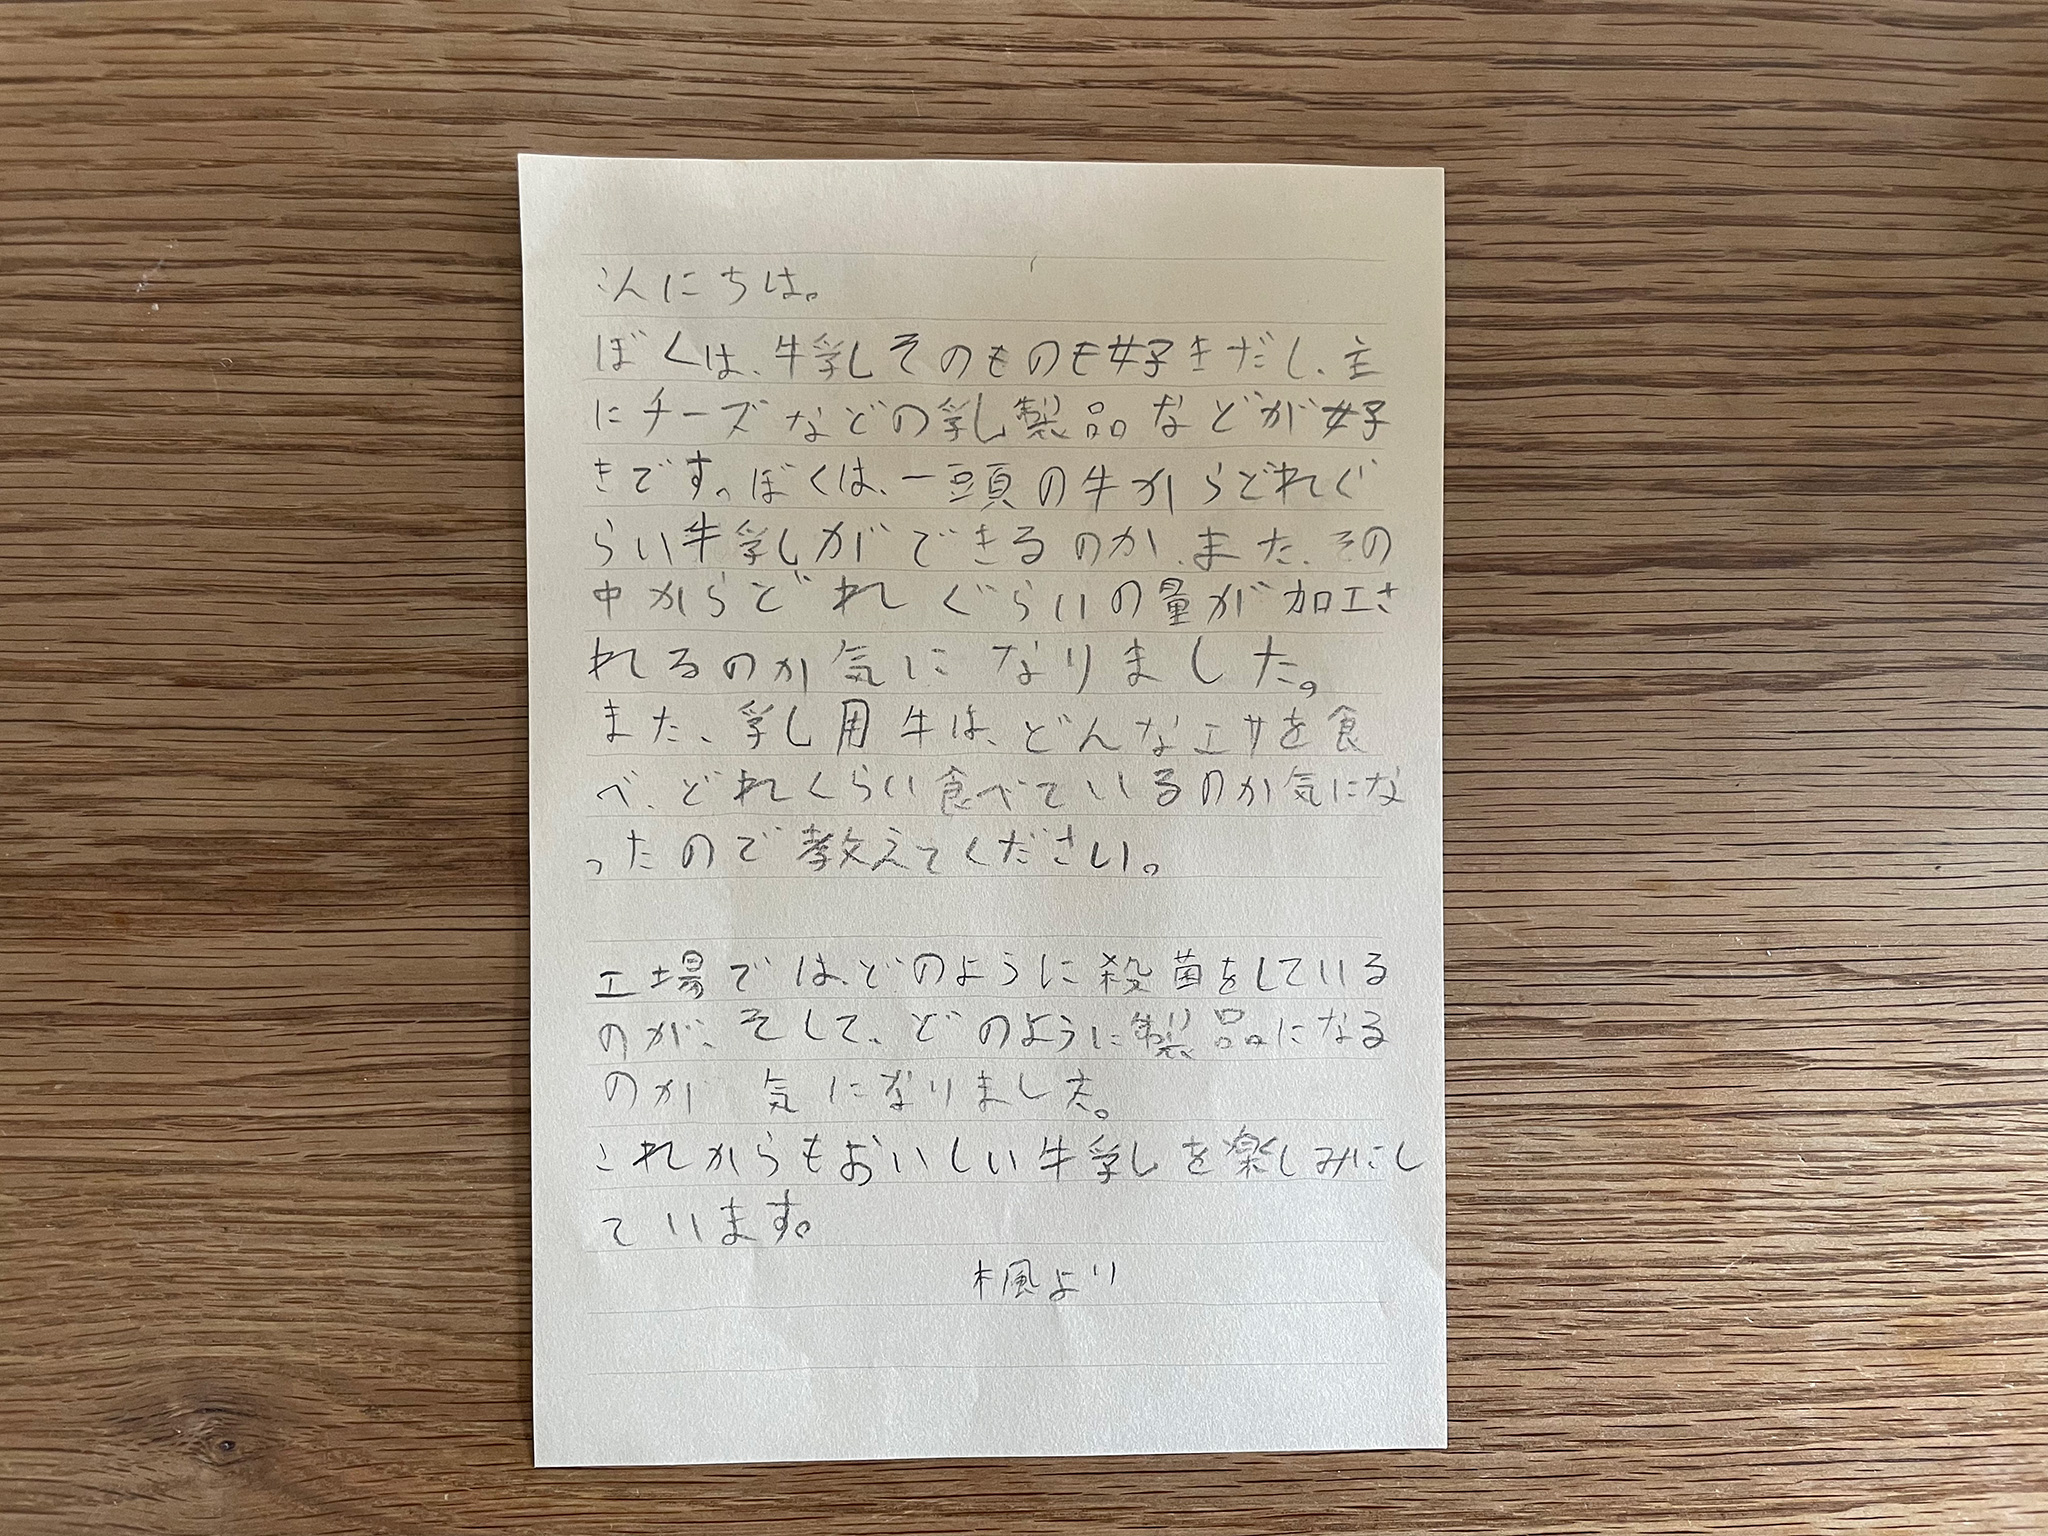 こんにちは。
ぼくは、牛乳そのものも好きだし、主
にチーズなどの乳製品などが好
きです。ぼくは、一頭の牛からどれぐ
らい牛乳ができるのか、また、その
中からどれぐらいの量が加工さ
れるのか気になりました。
また、乳用牛は、どんなエサを食
べ、どれくらい食べているのか気にな
ったので教えてください。
工場では、どのように殺菌をしている
のか、そして、どのように製品になる
のか 気になりました。
これからもおいしい牛乳を楽しみにし
ています。
楓より